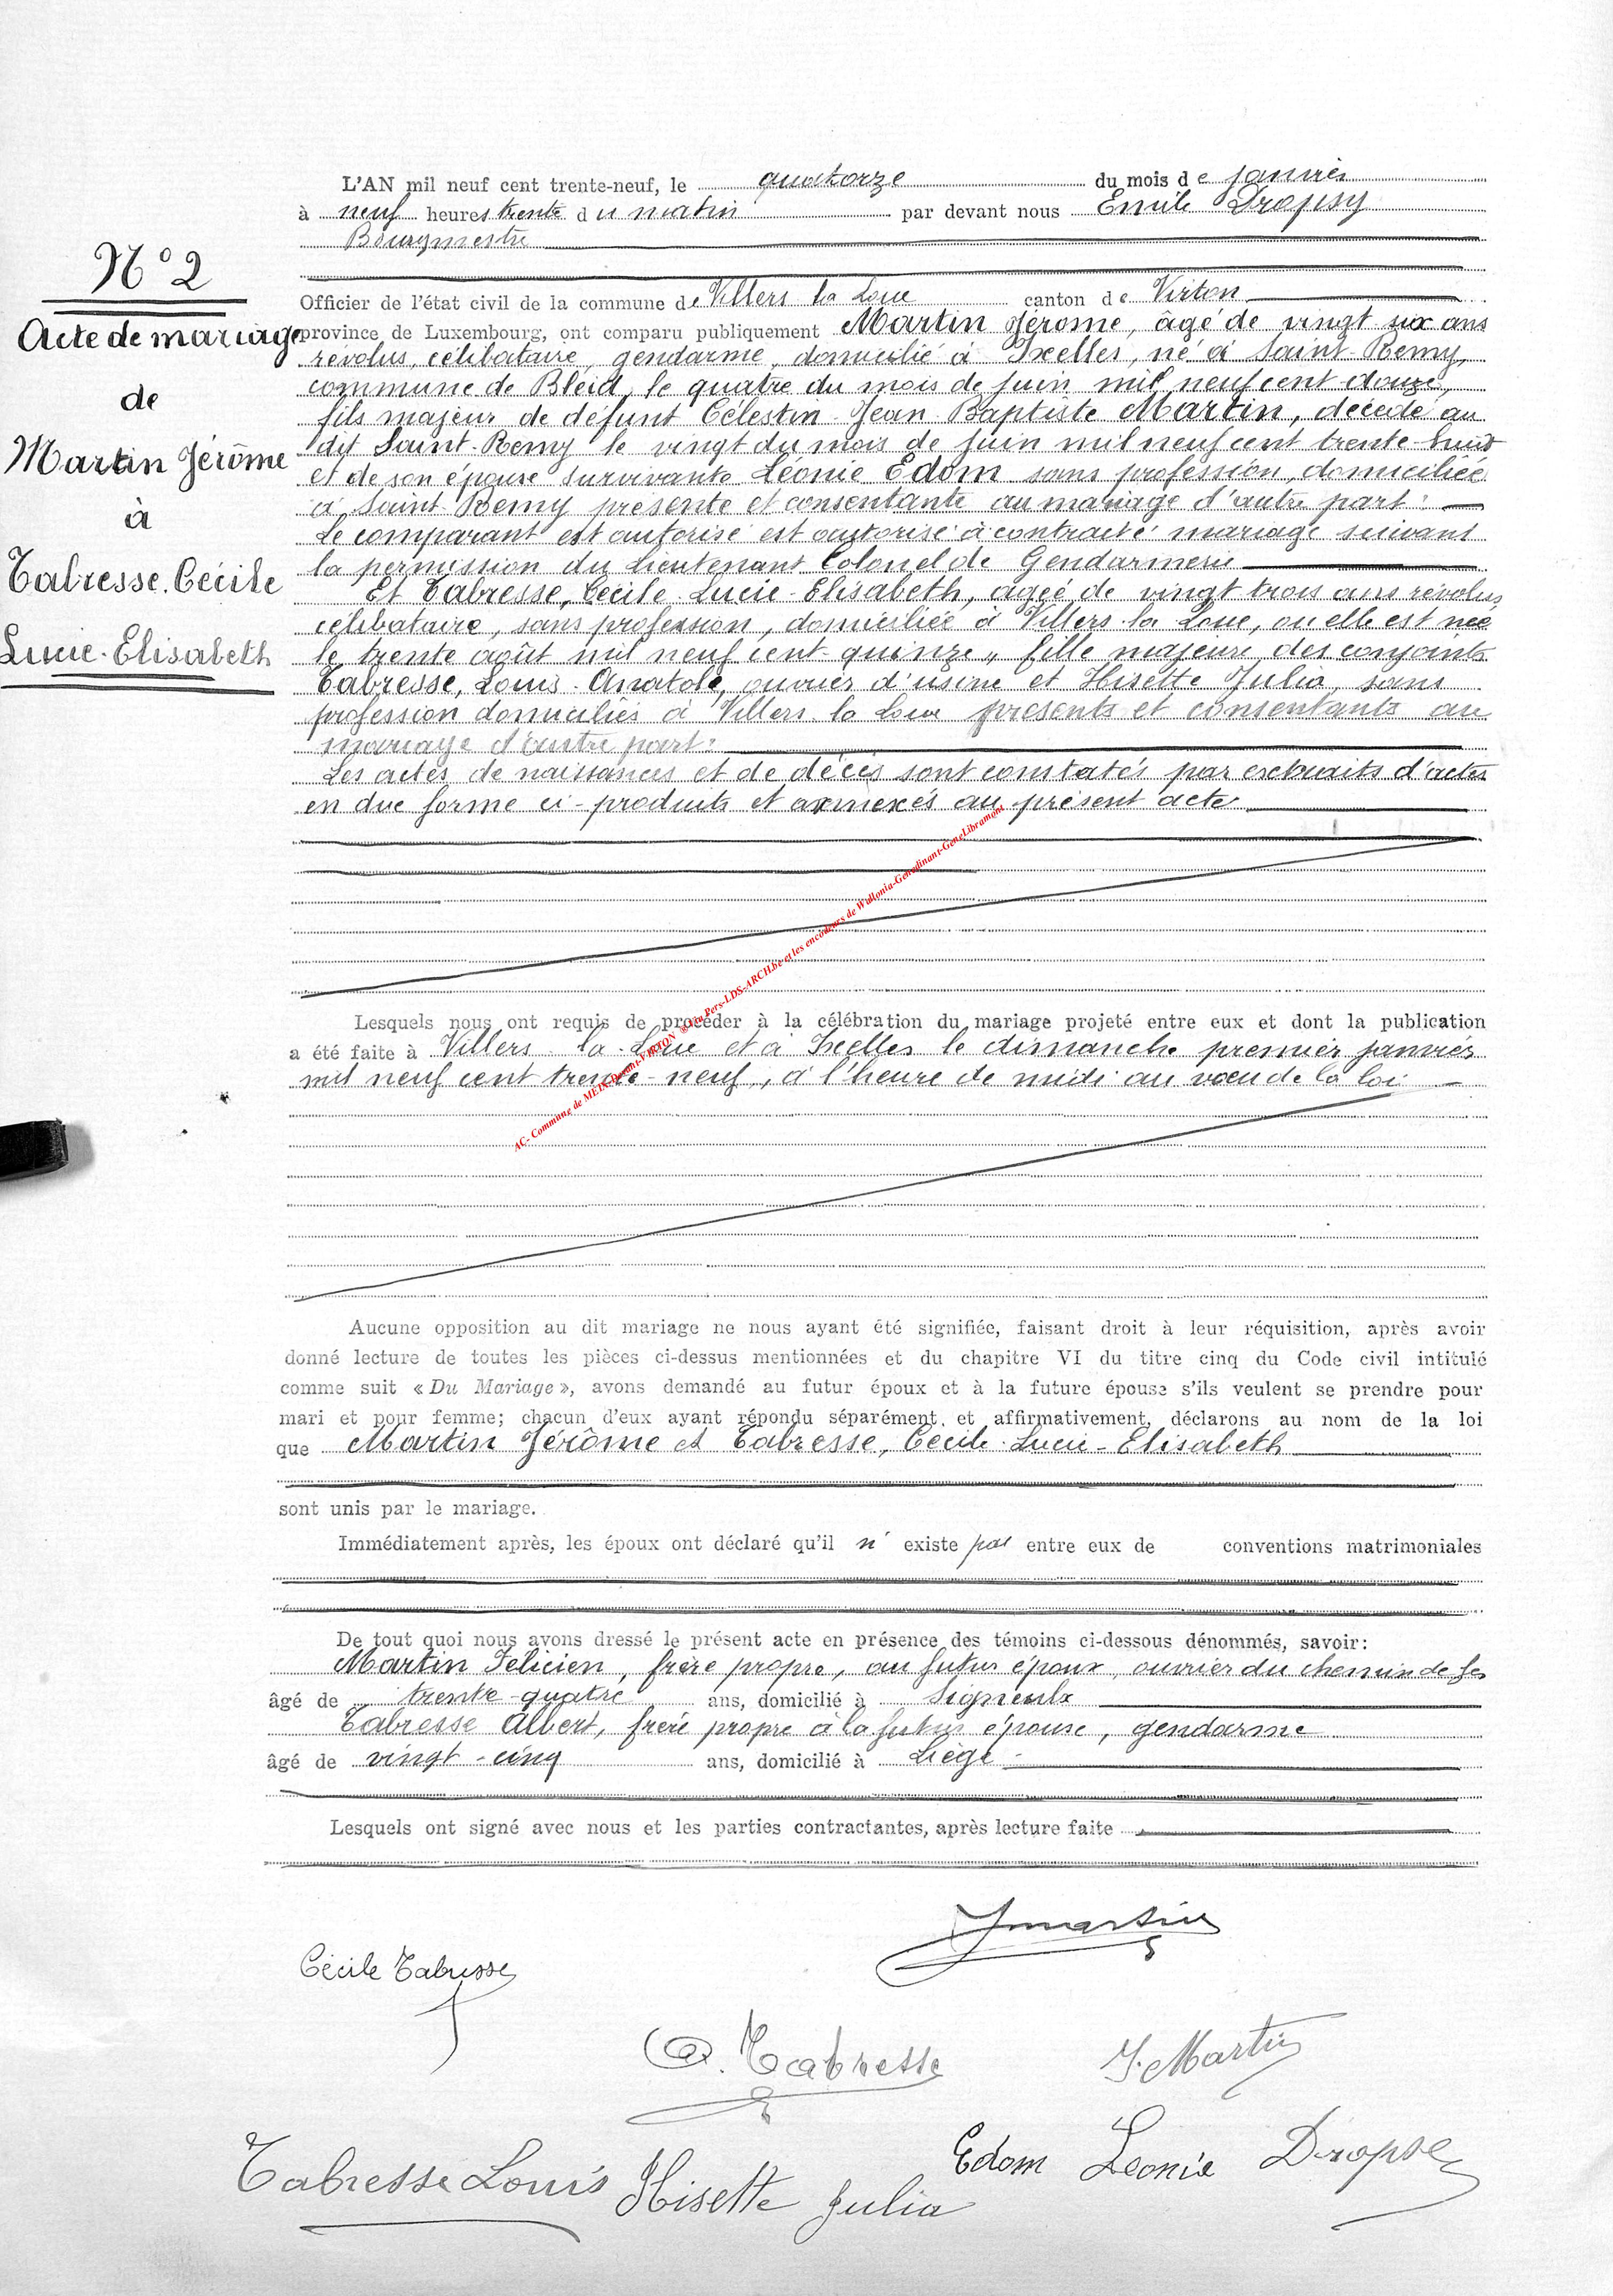 L'AN mil neuf cent trente-neuf, le quatorze du mois de janvier
à neuf heures trente du matin par devant nous Emile Dropsy
Bourgmestre
N° 2
Officier de l'état civil de la commune de Villers la Loue canton de Virton
Acte de mariage
province de Luxembourg, ont comparu publiquement Martin Jérome, âgé de vingt six ans
révolus, célibataire, gendarme, domicilié à Ixelles, né à Saint-Remy,
commune de Bleid, le quatre du mois de juin mil neuf cent douze,
de
fils majeur de défunt Célestin-Jean-Baptiste Martin, décédé au
dit Saint-Remy le vingt du mois de juin mil neuf cent trente-huit
Martin Jérôme
et de son épouse survivante Léonie Edom sans profession, domiciliée
à Saint-Remy présente et consentante au mariage d'autre part:
à
Le comparant est autorisé est autorisé à contracté mariage suivant
la permission du Lieutenant Colonel de Gendarmerie
Tabresse. Cécile
Et Tabresse, Cécile-Lucie-Elisabeth, agée de vingt trois ans révolus
célibataire, sans profession, domiciliée à Villers-la-Loue, ou elle est née
Lucie-Elisabeth
le trente août mil neuf cent-quinze, fille majeure des conjoints
Tabresse, Louis-Anatole, ouvrier d'usine et Hisette Julia, sans
profession domiciliés à Villers-la-Loue présents et consentants au
mariage d'autre part:
Les actes de naissances et de décès sont constatés par extraits d'actes
en due forme ci-produits et annexés au présent acte
AC- Commune de MEIX-Devant-VIRTON @ Via Pers-LDS-ARCH.be et les encodeurs de Wallonia-Genedinant-GeneLibramont
Lesquels nous ont requis de procéder à la célébration du mariage projeté entre eux et dont la publication
a été faite à Villers-la-Loue et à Ixelles le dimanche premier janvier
mil neuf cent trente-neuf, à l'heure de midi au vœu de la loi
Aucune opposition au dit mariage ne nous ayant été signifiée, faisant droit à leur réquisition, après avoir
donné lecture de toutes les pièces ci-dessus mentionnées et du chapitre VI du titre cinq du Code civil intitulé
comme suit « Du Mariage », avons demandé au futur époux et à la future épouse s'ils veulent se prendre pour
mari et pour femme; chacun d'eux ayant répondu séparément et affirmativement, déclarons au nom de la loi
que Martin Jérôme et Tabresse, Cécile-Lucie-Elisabeth
sont unis par le mariage.
Immédiatement après, les époux ont déclaré qu'il n' existe pas entre eux de conventions matrimoniales
De tout quoi nous avons dressé le présent acte en présence des témoins ci-dessous dénommés, savoir:
Martin Felicien, frère propre, au futur époux, ouvrier du chemin de fer
âgé de trente-quatre ans, domicilié à Signeulx
Tabresse Albert, frère propre à la future épouse, gendarme
âgé de vingt-cinq ans, domicilié à Liège
Lesquels ont signé avec nous et les parties contractantes, après lecture faite
Jmartin
Cécile Tabresse
A. Tabresse
F. Martin
Edom Leonie Dropsy
Tabresse Louis Hisette Julia